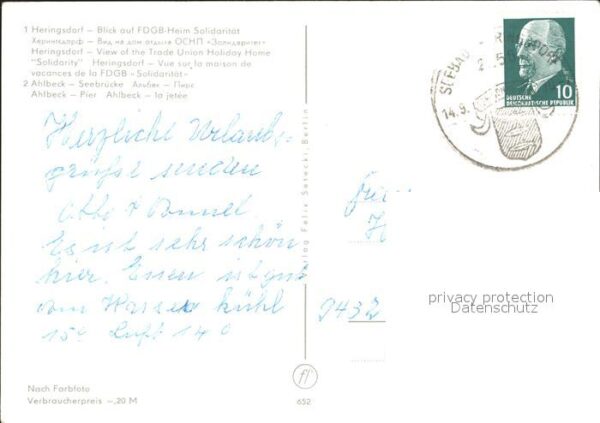 1 Heringsdorf — Blick auf FDGB-Heim Solidarität
Херингсдорф — Вид на дом отдыха ОСНП «Золидаритет»
Heringsdorf — View of the Trade Union Holiday Home
"Solidarity" Heringsdorf — Vue sur la maison de
vacances de la FDGB «Solidarität»
2 Ahlbeck — Seebrücke Альбек — Пирс
Ahlbeck — Pier Ahlbeck — la jetée
Herzliche Urlaubs-
grüße senden
Es ist sehr schön
hier. Essen ist gut
Wasser kühl
15° Luft 14°
Nach Farbfoto
Verbraucherpreis —,20 M
Verlag Felix Setecki, Berlin
652
SEEBAD
14.9.
10
DEUTSCHE
DEMOKRATISCHE REPUBLIK
9432
privacy protection
Datenschutz